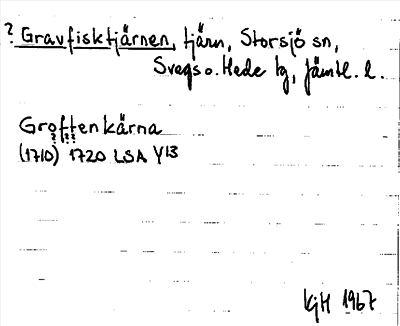 ? Gravfisktjärnen, tjärn, Storsjö sn,
Svegs o. Hede tg, Jämtl. l.
Groftenkärna
? ? ?
(1710) 1720 LSA Y13
KjH 1967